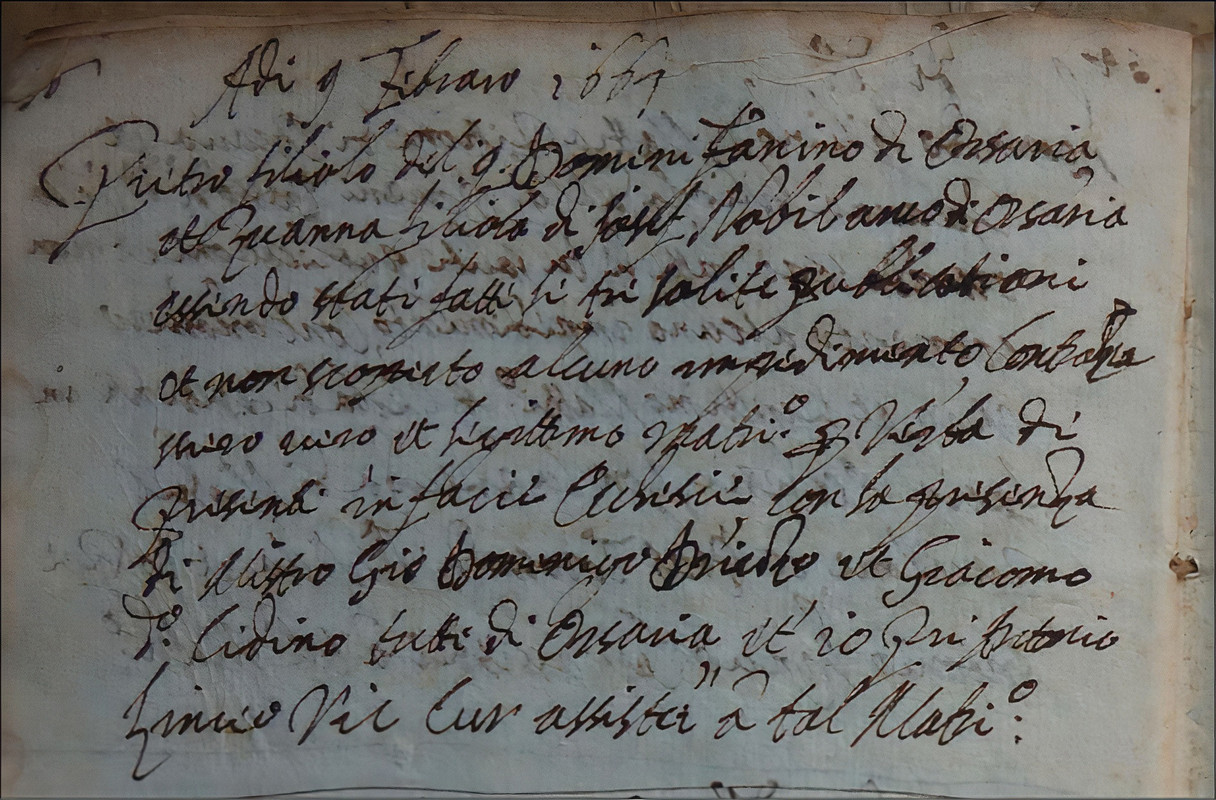 Adi 9 Febraro 1667
Pietro filiolo del q. Domini Fanino di Orsaria
et Zuanna filiola di Josef Nobil anco di Orsaria
essendo stati fatti li tri solite publicationi
et non scoperto alcuno impedimento
vero et legittimo Matri.o p Verba di
presenti in facie Eclesie con la presenza
di Mistro Gio Domenigo et Giacomo
d.o Cidino tutti di Orsaria et io Pri Antonio
Vic Cur assistei à tal Matri.o: